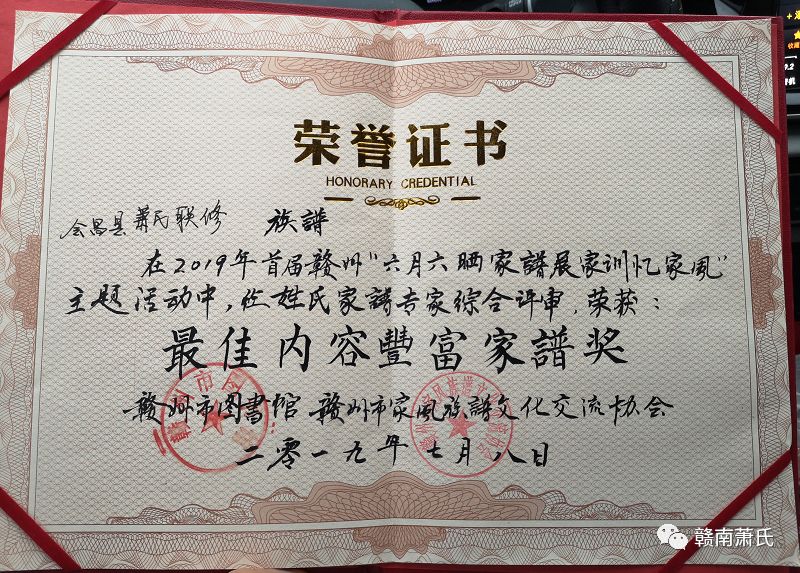 荣誉证书
HONORARY CREDENTIAL
会昌县萧氏联修 族譜
在2019年首届赣州"六月六晒家譜展家训忆家風"
主题活动中，经姓氏家譜专家综合评审，荣获：
最佳内容豐富家譜奖
赣州市图書馆 赣州市家風族譜文化交流协会
二零一九年七月八日
赣南萧氏